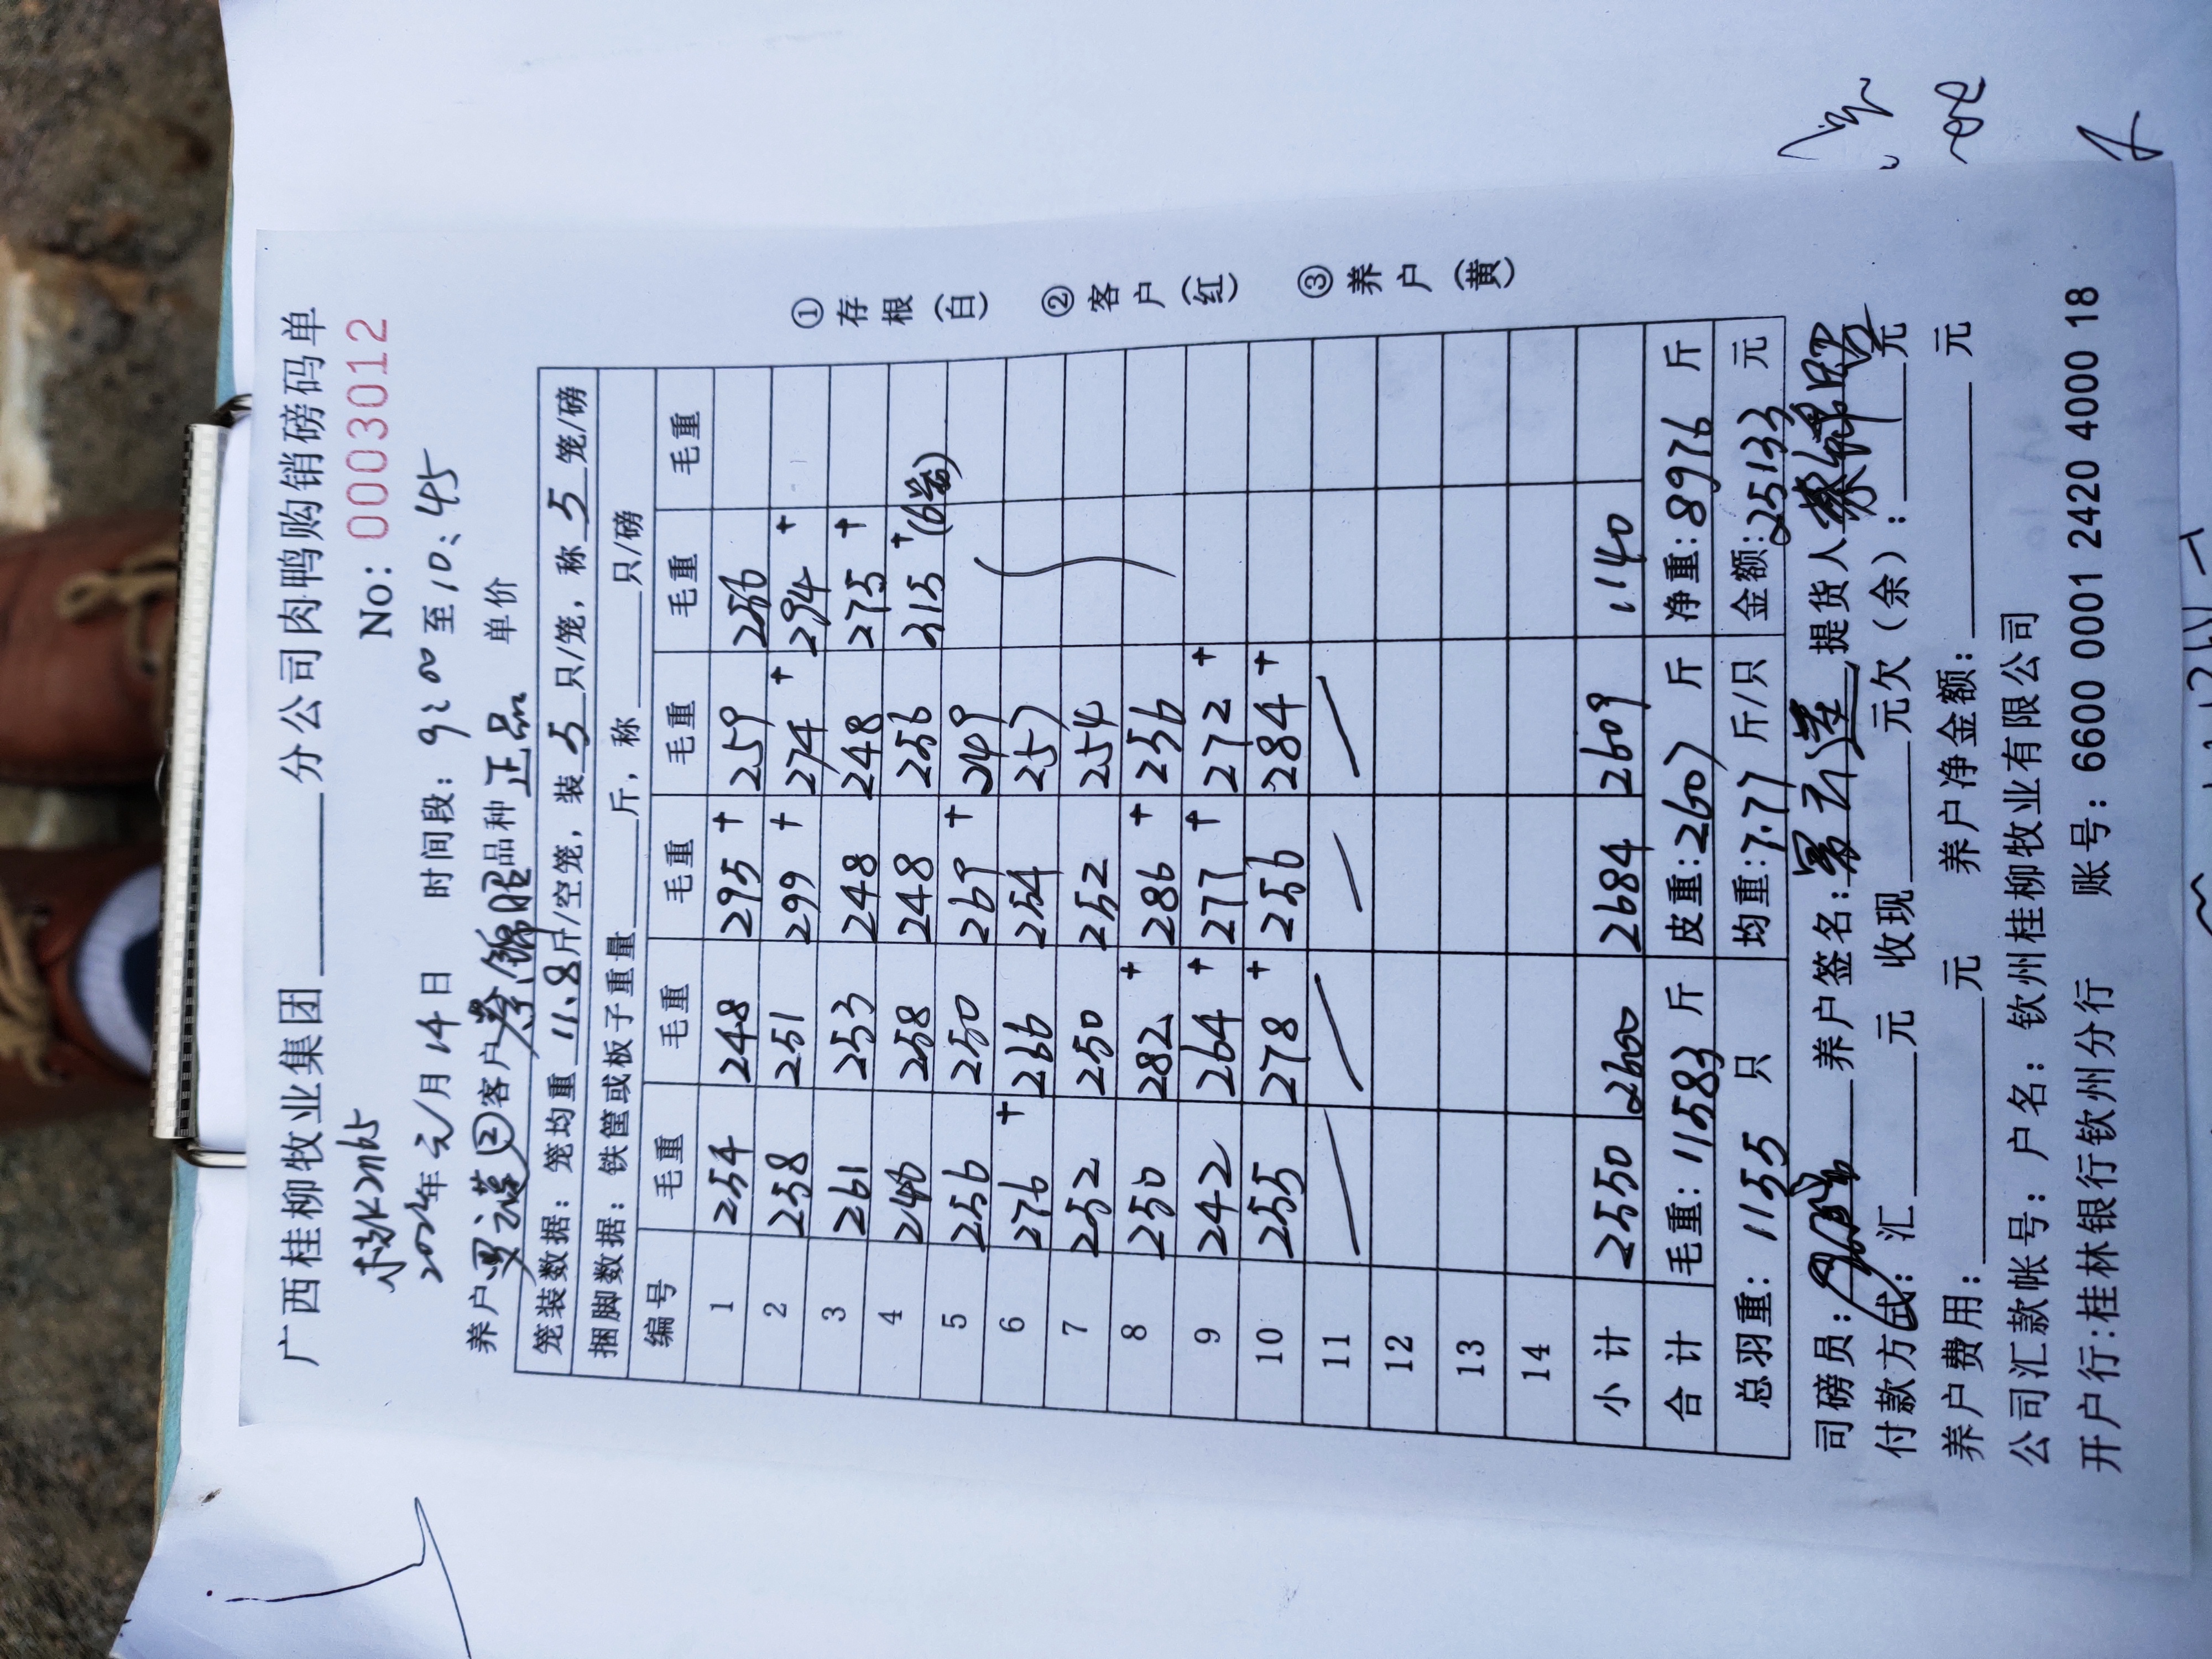 广西桂柳牧业集团______分公司肉鸭购销磅码单
No: 0003012
2024年元月14日 时间段: 9:00至10:45
养户罗云莲② 客户 品种正品 单价
笼装数据: 笼均重11.8斤/空笼, 装5只/笼, 称5笼/磅
捆脚数据: 铁筐或板子重量______斤, 称______只/磅
编号 毛重 毛重 毛重 毛重 毛重 毛重
1 254 248 295+ 259 256
2 258 251 299+ 274+ 294+
3 261 253 248 248 275+
4 246 258 248 256 315+(6笼)
5 256 250 269+ 249
6 276+ 266 254 257
7 252 250 252 254
8 250 282+ 286+ 256
9 242 264+ 277+ 272+
10 255 278+ 256 284+
11
12
13
14
小计 2550 2600 2684 2609 1140
合计 毛重: 11583斤 皮重: 2607斤 净重: 8976斤
总羽重: 1155只 均重: 7.77斤/只 金额: 25133元
司磅员: 养户签名: 罗云莲 提货人
付款方式: 汇______元 收现______元欠(余): ______元
养户费用: ______元 养户净金额: ______元
公司汇款帐号: 户名: 钦州桂柳牧业有限公司
开户行:桂林银行钦州分行 账号: 6600 0001 2420 4000 18
①存根(白) ②客户(红) ③养户(黄)